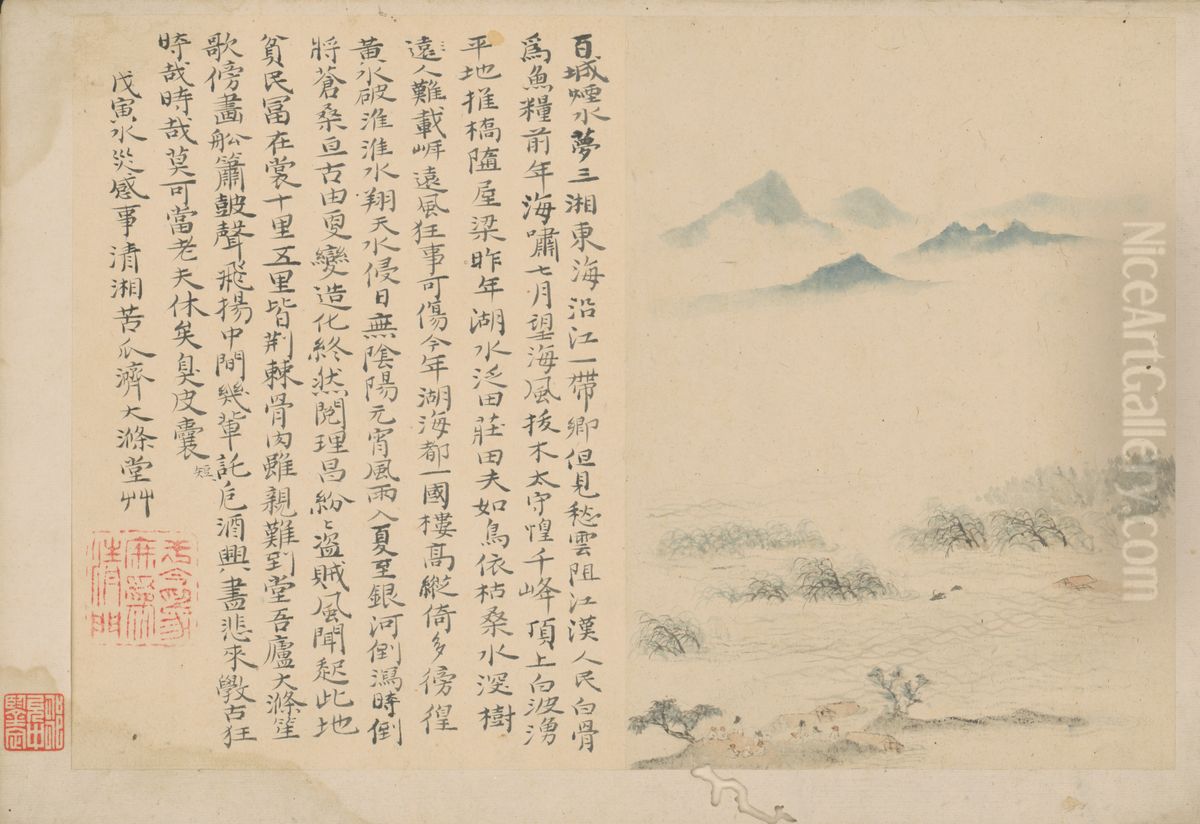 百城煙水夢三湘東海沿江一帶鄉但見愁雲阻江漢人民白骨
為魚糧前年海嘯七月望海風拔木太守惶千峰頂上白波湧
平地推橋隨屋梁昨年湖水泛田莊田夫如鳥依枯桑水深樹
遠人難載岸遠風狂事可傷今年湖海都一國樓高縱倚多徬徨
黃水破淮淮水翔天水侵日無陰陽元宵風雨入夏至銀河倒瀉時倒
將蒼桑亘古由更變造化終然閱理昌紛〻盜賊風聞起此地
貧民冨在裳十里五里皆荆棘骨肉雖親難到堂吾廬大滌笙
歌傍畵船簫皷聲飛揚中間幾輩託卮酒興盡悲來斆古狂
時哉時哉莫可當老夫休矣臭皮囊
短
戊寅水災感事清湘苦瓜濟大滌堂艸
NiceArtGallery.com